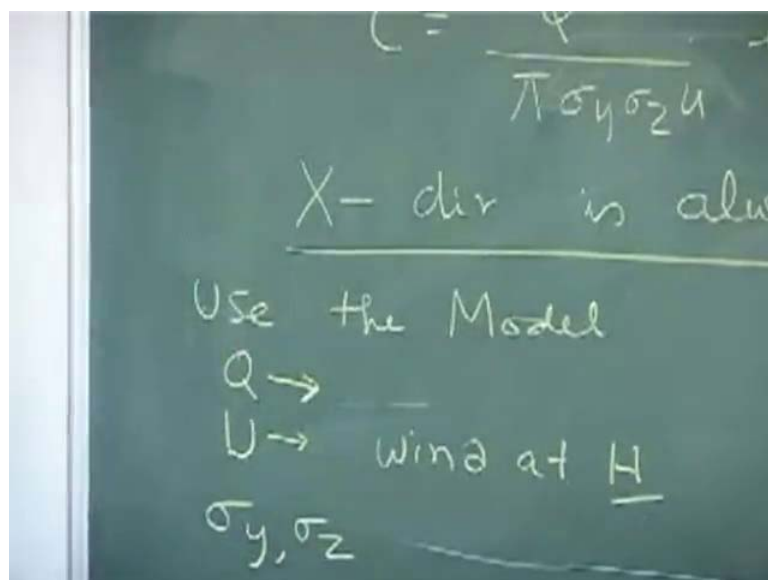 C =
π σy σz u
X- dir is
Use the Model
Q →
U → wind at H
σy, σz